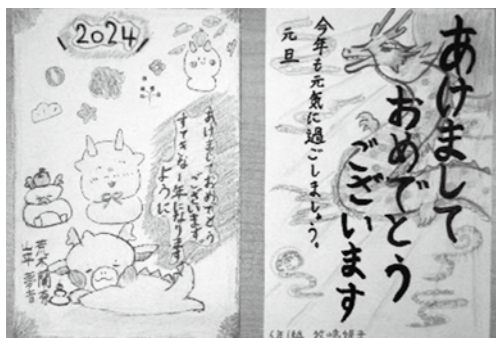 2024
あけましておめでとう
ございます
すてきな1年になります
ように
あけまして
おめでとう
ございます
今年も元気に過ごしましょう。
元旦